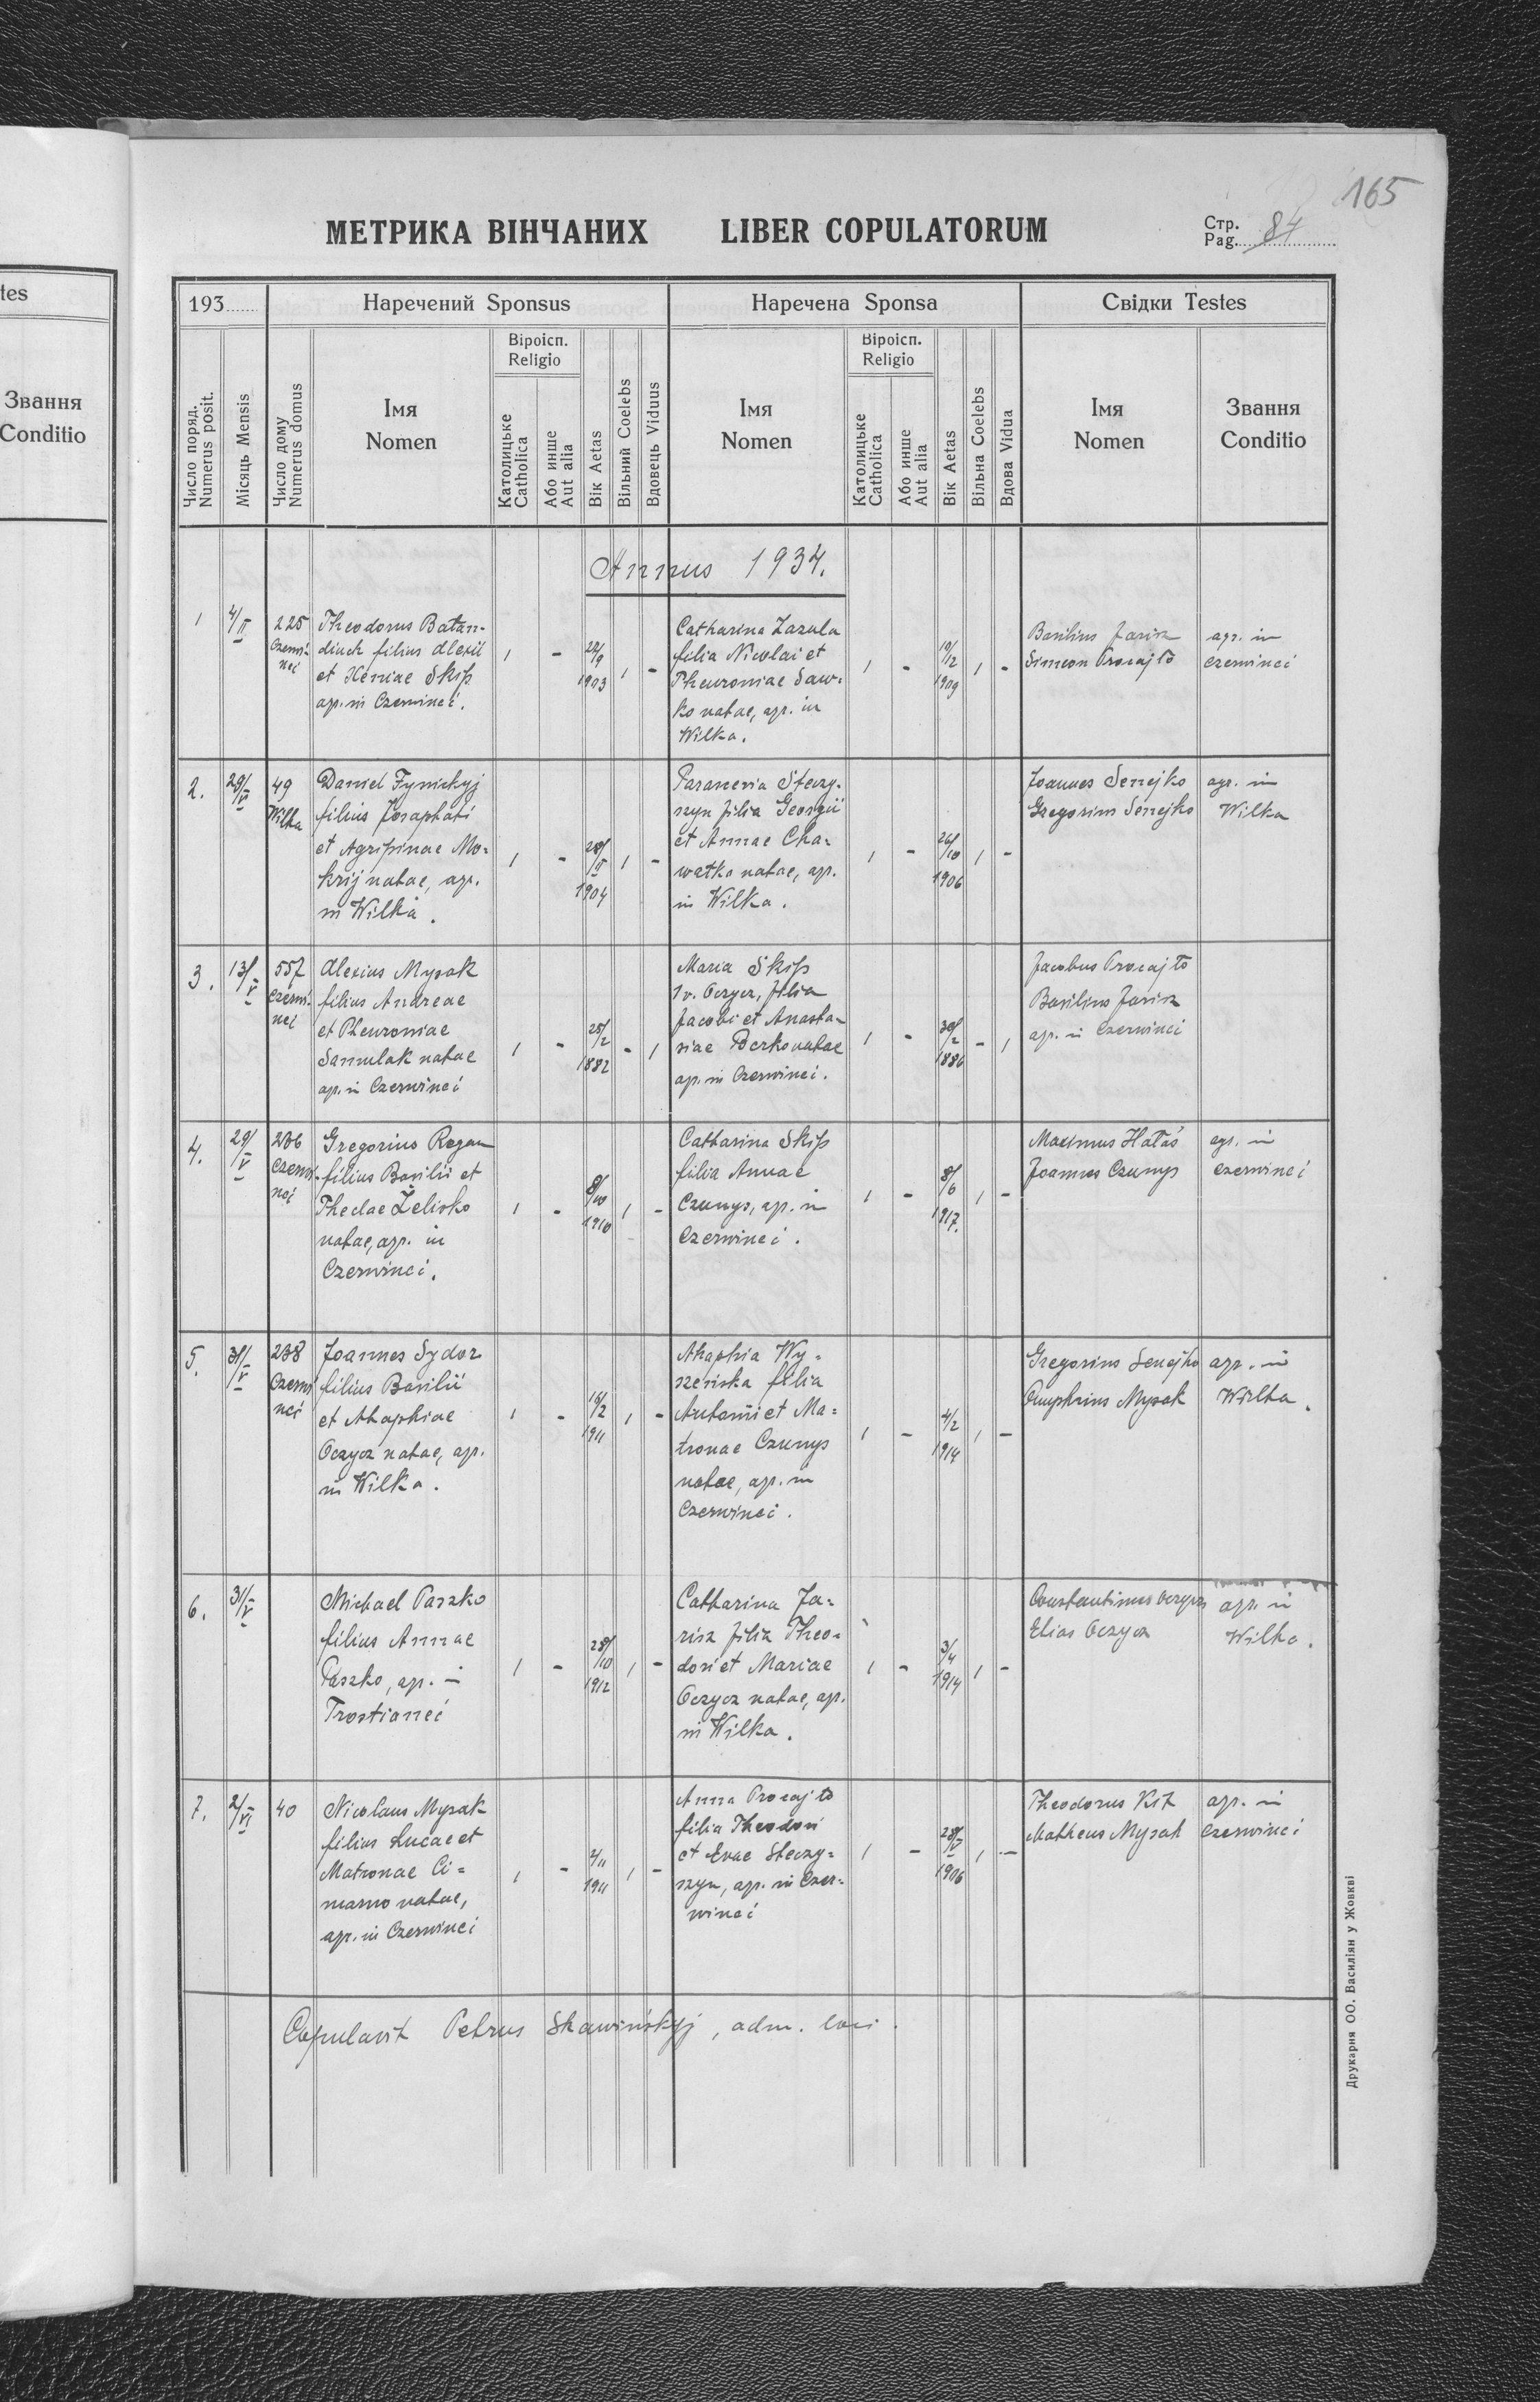 165
МЕТРИКА ВІНЧАНИХ LIBER COPULATORUM
Стр.
Pag. 84
tes
Звання
Conditio
193
Наречений Sponsus
Наречена Sponsa
Свідки Testes
Число поряд.
Numerus posit.
Місяць Mensis
Число дому
Numerus domus
Імя
Nomen
Віроісп.
Religio
Католицьке
Catholica
Або инше
Aut alia
Вік Aetas
Вільний Coelebs
Вдовець Viduus
Імя
Nomen
Віроісп.
Religio
Католицьке
Catholica
Або инше
Aut alia
Вік Aetas
Вільна Coelebs
Вдова Vidua
Імя
Nomen
Звання
Conditio
Annus 1934.
1
4/II
225
Czerwi-
nci
Theodorus Batan-
diuch filius Alexii
et Xeniae Skip
agr. in Czerwinci.
1
-
22/9
1903
1
-
Catharina Zazula
filia Nicolai et
Pheuroniae Saw-
ko natae, agr. in
Wilka.
1
-
10/12
1909
1
-
Basilius Jarisz
Simeon Procajło
agr. in
Czerwinci
2.
29/IV
49
Wilka
Daniel Fynickyj
filius Josaphati
et Agripinae Mo-
krij natae, agr.
in Wilka.
1
-
28/II
1904
1
-
Parascevia Steczy-
szyn filia Georgii
et Annae Cha-
watko natae, agr.
in Wilka.
1
-
26/10
1906
1
-
Joannes Senejko
Gregorius Senejko
agr. in
Wilka
3.
13/V
557
Czerwi-
nci
Alexius Mysak
filius Andreae
et Pheuroniae
Samulak natae
agr. in Czerwinci
1
-
25/2
1882
-
1
Maria Skip
1 v. Oczycz, filia
Jacobi et Anasta-
siae Berko natae
agr. in Czerwinci.
1
-
/2
1886
-
1
Jacobus Procajło
Basilius Jarisz
agr. in Czerwinci
4.
29/V
236
Czerwi-
nci
Gregorius Rogan
filius Basilii et
Theclae Żelisko
natae, agr. in
Czerwinci.
1
-
8/10
1910
1
-
Catharina Skip
filia Annae
Czunys, agr. in
Czerwinci.
1
-
8/6
1917.
1
-
Maximus Hałas
Joannes Czunys
agr. in
Czerwinci
5.
31/V
238
Czerwi
nci
Joannes Sydor
filius Basilii
et Ahaphiae
Oczycz natae, agr.
in Wilka.
1
-
16/2
1911
1
-
Ahaphia Wy-
szeńska filia
Antonii et Ma-
tronae Czunys
natae, agr. in
Czerwinci.
1
-
4/2
1914
1
-
Gregorius Senejko
Onuphrius Mysak
agr. in
Wilka.
6.
31/V
Michael Paszko
filius Annae
Paszko, agr. in
Trostianeć
1
-
28/10
1912
1
-
Catharina Ja-
risz filia Theo-
dosi et Mariae
Oczycz natae, agr.
in Wilka.
1
-
3/4
1914
1
-
Constantinus Oczycz
Elias Oczycz
agr. in
Wilka.
7.
2/VI
40
Nicolaus Mysak
filius Lucae et
Matronae Ci-
marno natae,
agr. in Czerwinci
1
-
2/11
1911
1
-
Anna Procajło
filia Theodori
et Evae Steczy-
szyn, agr. in Czer-
winci
1
-
28/V
1906
1
-
Theodorus Kit
Matheus Mysak
agr. in
Czerwinci
Copulavit Petrus Skawińskyj, adm. loci.
Друкарня ОО. Василіян у Жовкві